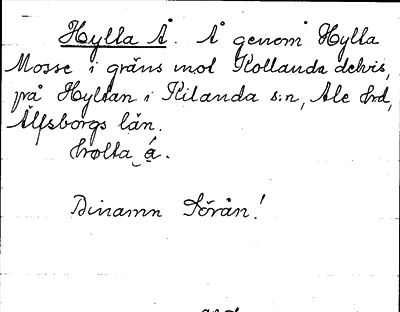 Hylla Å. Å genom Hylla
Mosse i gräns mot Kollanda delvis,
på Hyltan i Kilanda s:n, Ale hd,
Älfsborgs län.
hvolta å.
Binamn Sörån!